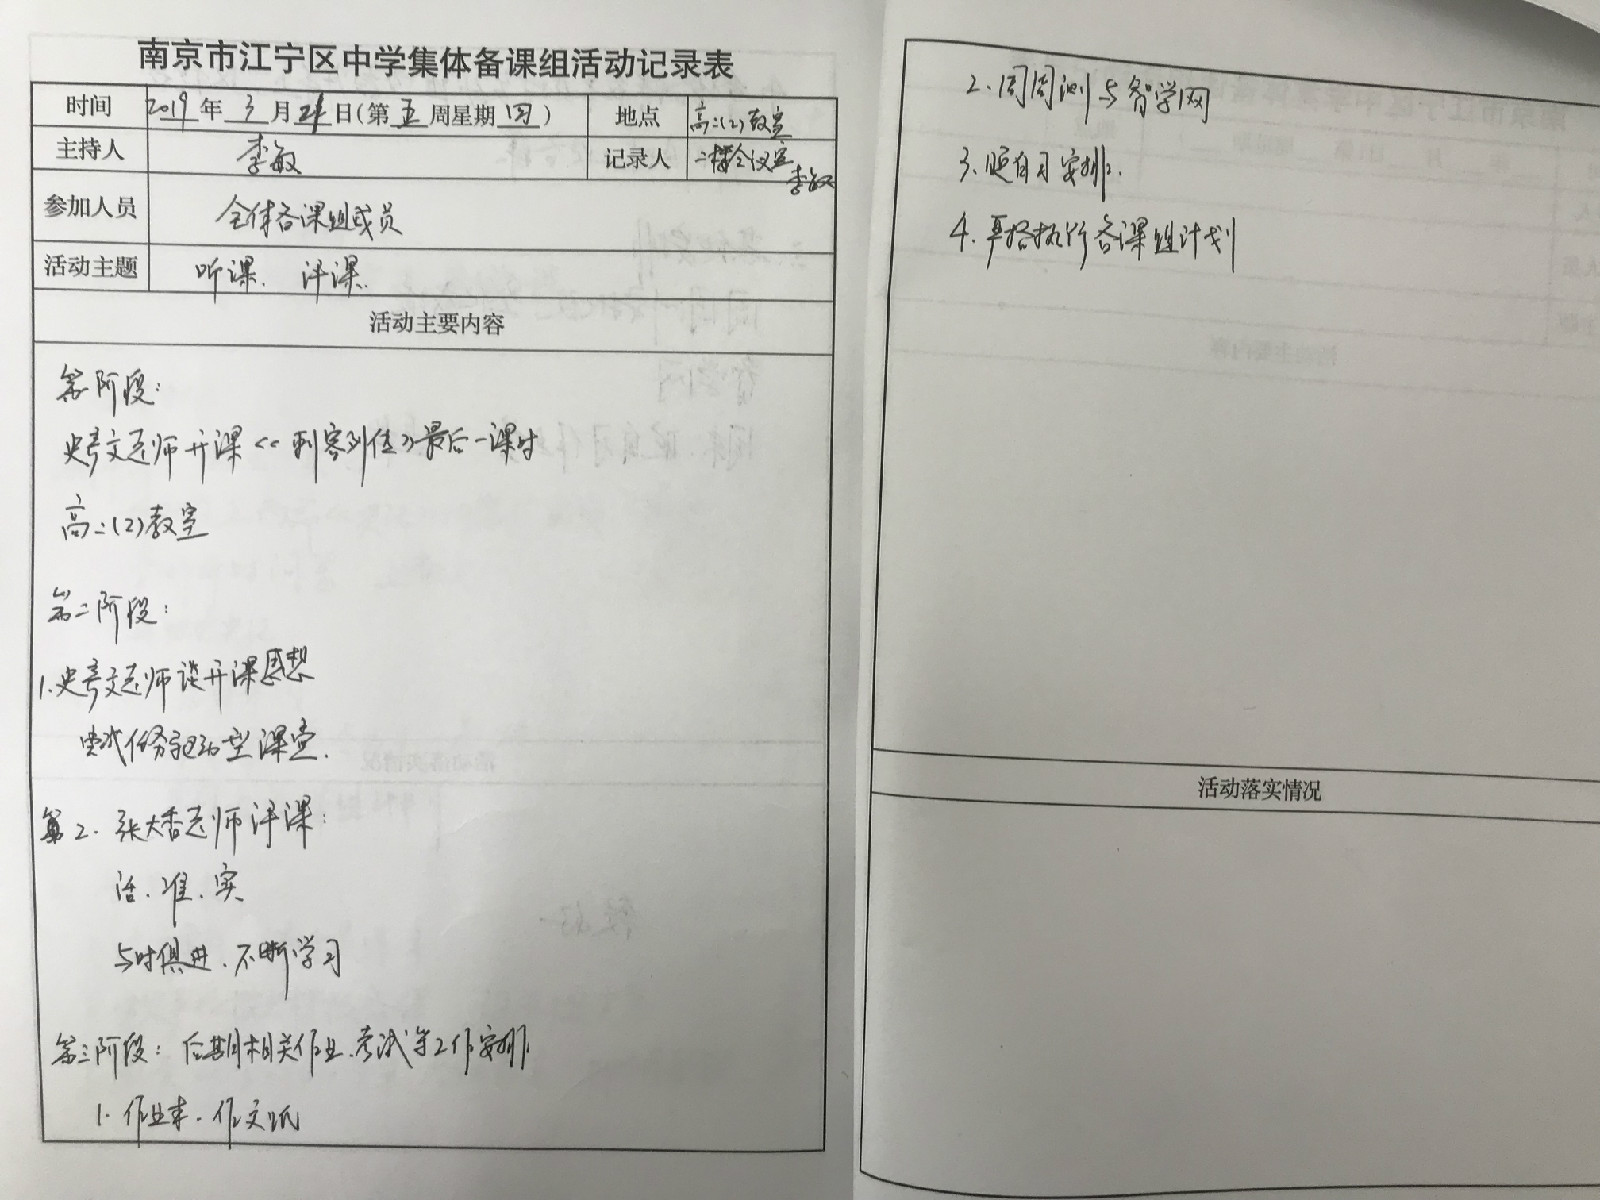 南京市江宁区中学集体备课组活动记录表
时间 2019年3月21日(第五周星期四) 地点 高二(2)教室
主持人 李敏 记录人 二楼会议室 李敏
参加人员 全体备课组成员
活动主题 听课、评课.
活动主要内容
第一阶段:
老师开课《刺客列传》最后一课时
高二(2)教室
第二阶段:
1.老师谈开课感想
尝试任务驱动型课堂.
2.张大香老师评课:
活、准、实
与时俱进、不断学习
第三阶段:后期相关作业、考试等工作安排
1.作业本、作文纸
2.周周测与智学网
3.晚自习安排.
4.严格执行备课组计划
活动落实情况